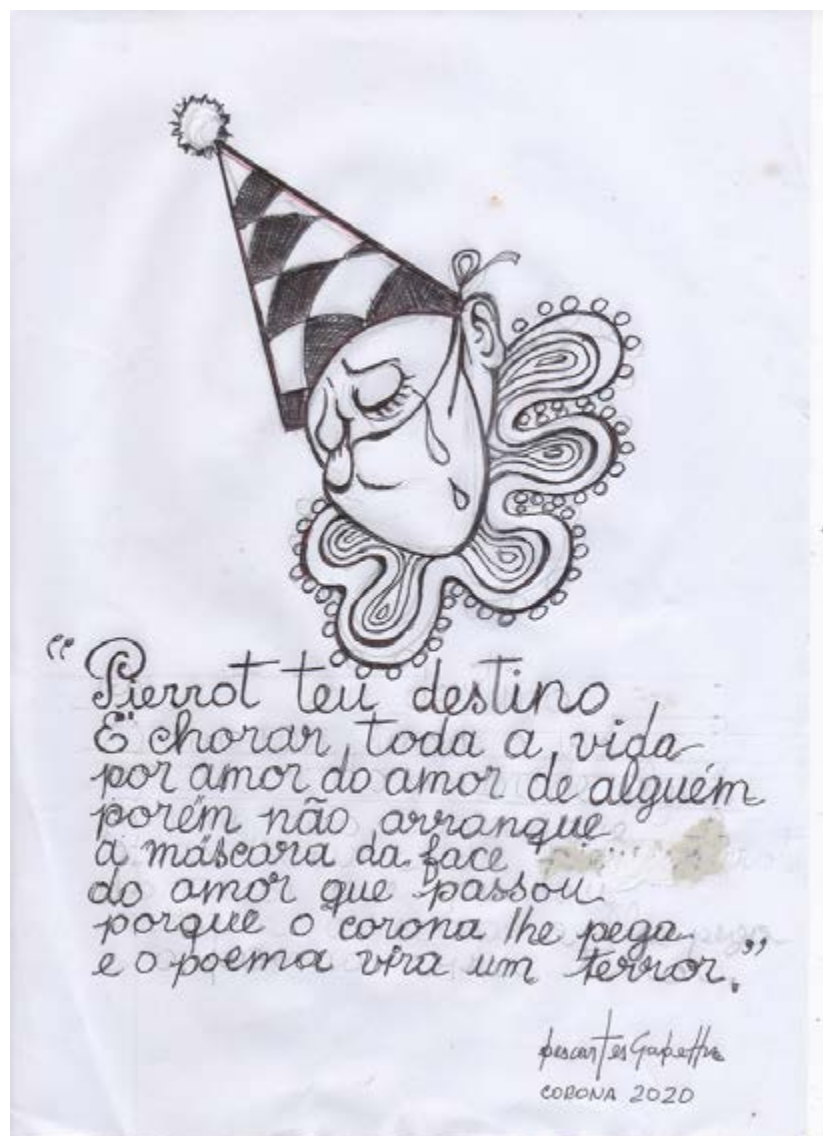 "Pierrot teu destino
É chorar, toda a vida
por amor do amor de alguém
porém não arranque
a máscara da face
do amor que passou
porque o corona lhe pega
e o poema vira um terror."
CORONA 2020